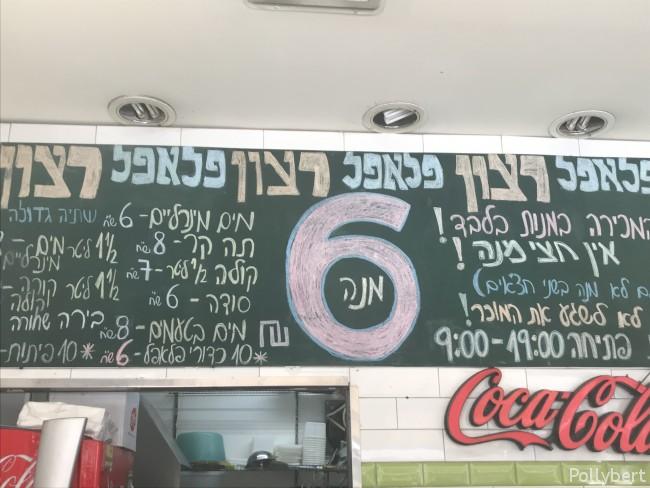 רצון פלאפל רצון פלאפל רצון פלאפל
שתיה גדולה
1½ ליטר מים -
מינרלים
1½ ליטר קוקה -
קולה
בירה שחורה
* 10 פיתות -
מים מינרלים - 6 ש"ח
תה קר - 8 ש"ח
קולה ½ ליטר - 7 ש"ח
סודה - 6 ש"ח
מים בטעמים - 8 ש"ח
* 10 כדורי פלאפל - 6 ש"ח
6
מנה
₪
המכירה במנות בלבד!
אין חצי מנה!
(גם לא מנה בשני חצאים)
לא לשגע את המוכר!
פתיחה 9:00-19:00
Coca-Cola
Pollybert